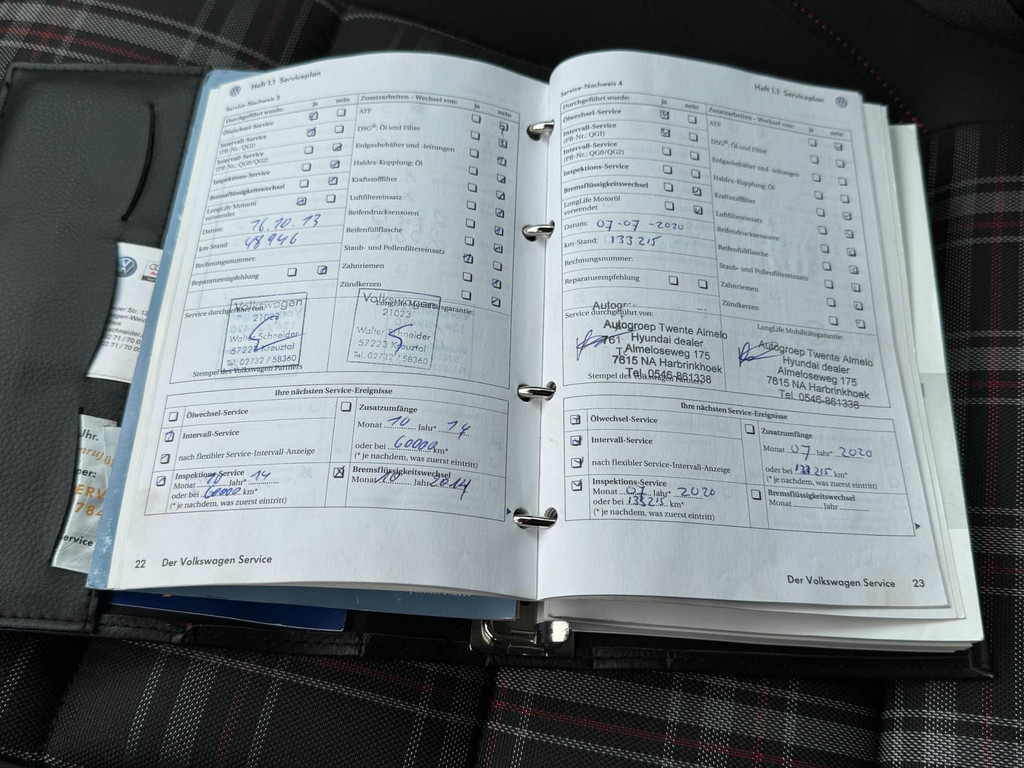 Heft 1.1 Serviceplan
Service-Nachweis 3
Durchgeführt wurde: ja nein
Ölwechsel-Service
Intervall-Service
(PR-Nr.: QG1)
Intervall-Service
(PR-Nr.: QG0/QG2)
Inspektions-Service
Bremsflüssigkeitswechsel
LongLife Motoröl
verwendet
Datum: 16.10.13
km-Stand: 48946
Rechnungsnummer:
Reparaturempfehlung
Zusatzarbeiten - Wechsel von: ja nein
ATF
DSG®: Öl und Filter
Erdgasbehälter und -leitungen
Haldex-Kupplung: Öl
Kraftstofffilter
Luftfiltereinsatz
Reifendrucksensoren
Reifenfüllflasche
Staub- und Pollenfiltereinsatz
Zahnriemen
Zündkerzen
Service durchgeführt von:
Volkswagen
21023
Walter Schneider
57223 Kreuztal
Tel. 02732 / 58360
Stempel des Volkswagen Partners
LongLife Mobilitätsgarantie:
Volkswagen
21023
Walter Schneider
57223 Kreuztal
Tel. 02732 / 58360
Ihre nächsten Service-Ereignisse
Ölwechsel-Service
Intervall-Service
nach flexibler Service-Intervall-Anzeige
Inspektions-Service
Monat 10 Jahr* 14
oder bei 60000 km*
(* je nachdem, was zuerst eintritt)
Zusatzumfänge
Monat 10 Jahr* 14
oder bei 60000 km*
(* je nachdem, was zuerst eintritt)
Bremsflüssigkeitswechsel
Monat 10 Jahr 2014
22 Der Volkswagen Service
Service-Nachweis 4
Heft 1.1 Serviceplan
Durchgeführt wurde: ja nein
Ölwechsel-Service
Intervall-Service
(PR-Nr.: QG1)
Intervall-Service
(PR-Nr.: QG0/QG2)
Inspektions-Service
Bremsflüssigkeitswechsel
LongLife Motoröl
verwendet
Datum: 07-07-2020
km-Stand: 133215
Rechnungsnummer:
Reparaturempfehlung
Zusatzarbeiten - Wechsel von: ja nein
ATF
DSG®: Öl und Filter
Erdgasbehälter und -leitungen
Haldex-Kupplung: Öl
Kraftstofffilter
Luftfiltereinsatz
Reifendrucksensoren
Reifenfüllflasche
Staub- und Pollenfiltereinsatz
Zahnriemen
Zündkerzen
Service durchgeführt von:
Autogroep Twente Almelo
Hyundai dealer
Almeloseweg 175
7615 NA Harbrinkhoek
Tel. 0546-861338
Stempel des Volkswagen Partners
LongLife Mobilitätsgarantie:
Autogroep Twente Almelo
Hyundai dealer
Almeloseweg 175
7615 NA Harbrinkhoek
Tel. 0546-861338
Ihre nächsten Service-Ereignisse
Ölwechsel-Service
Intervall-Service
nach flexibler Service-Intervall-Anzeige
Inspektions-Service
Monat 07 Jahr* 2020
oder bei 133215 km*
(* je nachdem, was zuerst eintritt)
Zusatzumfänge
Monat 07 Jahr* 2020
oder bei 133215 km*
(* je nachdem, was zuerst eintritt)
Bremsflüssigkeitswechsel
Monat Jahr
Der Volkswagen Service 23